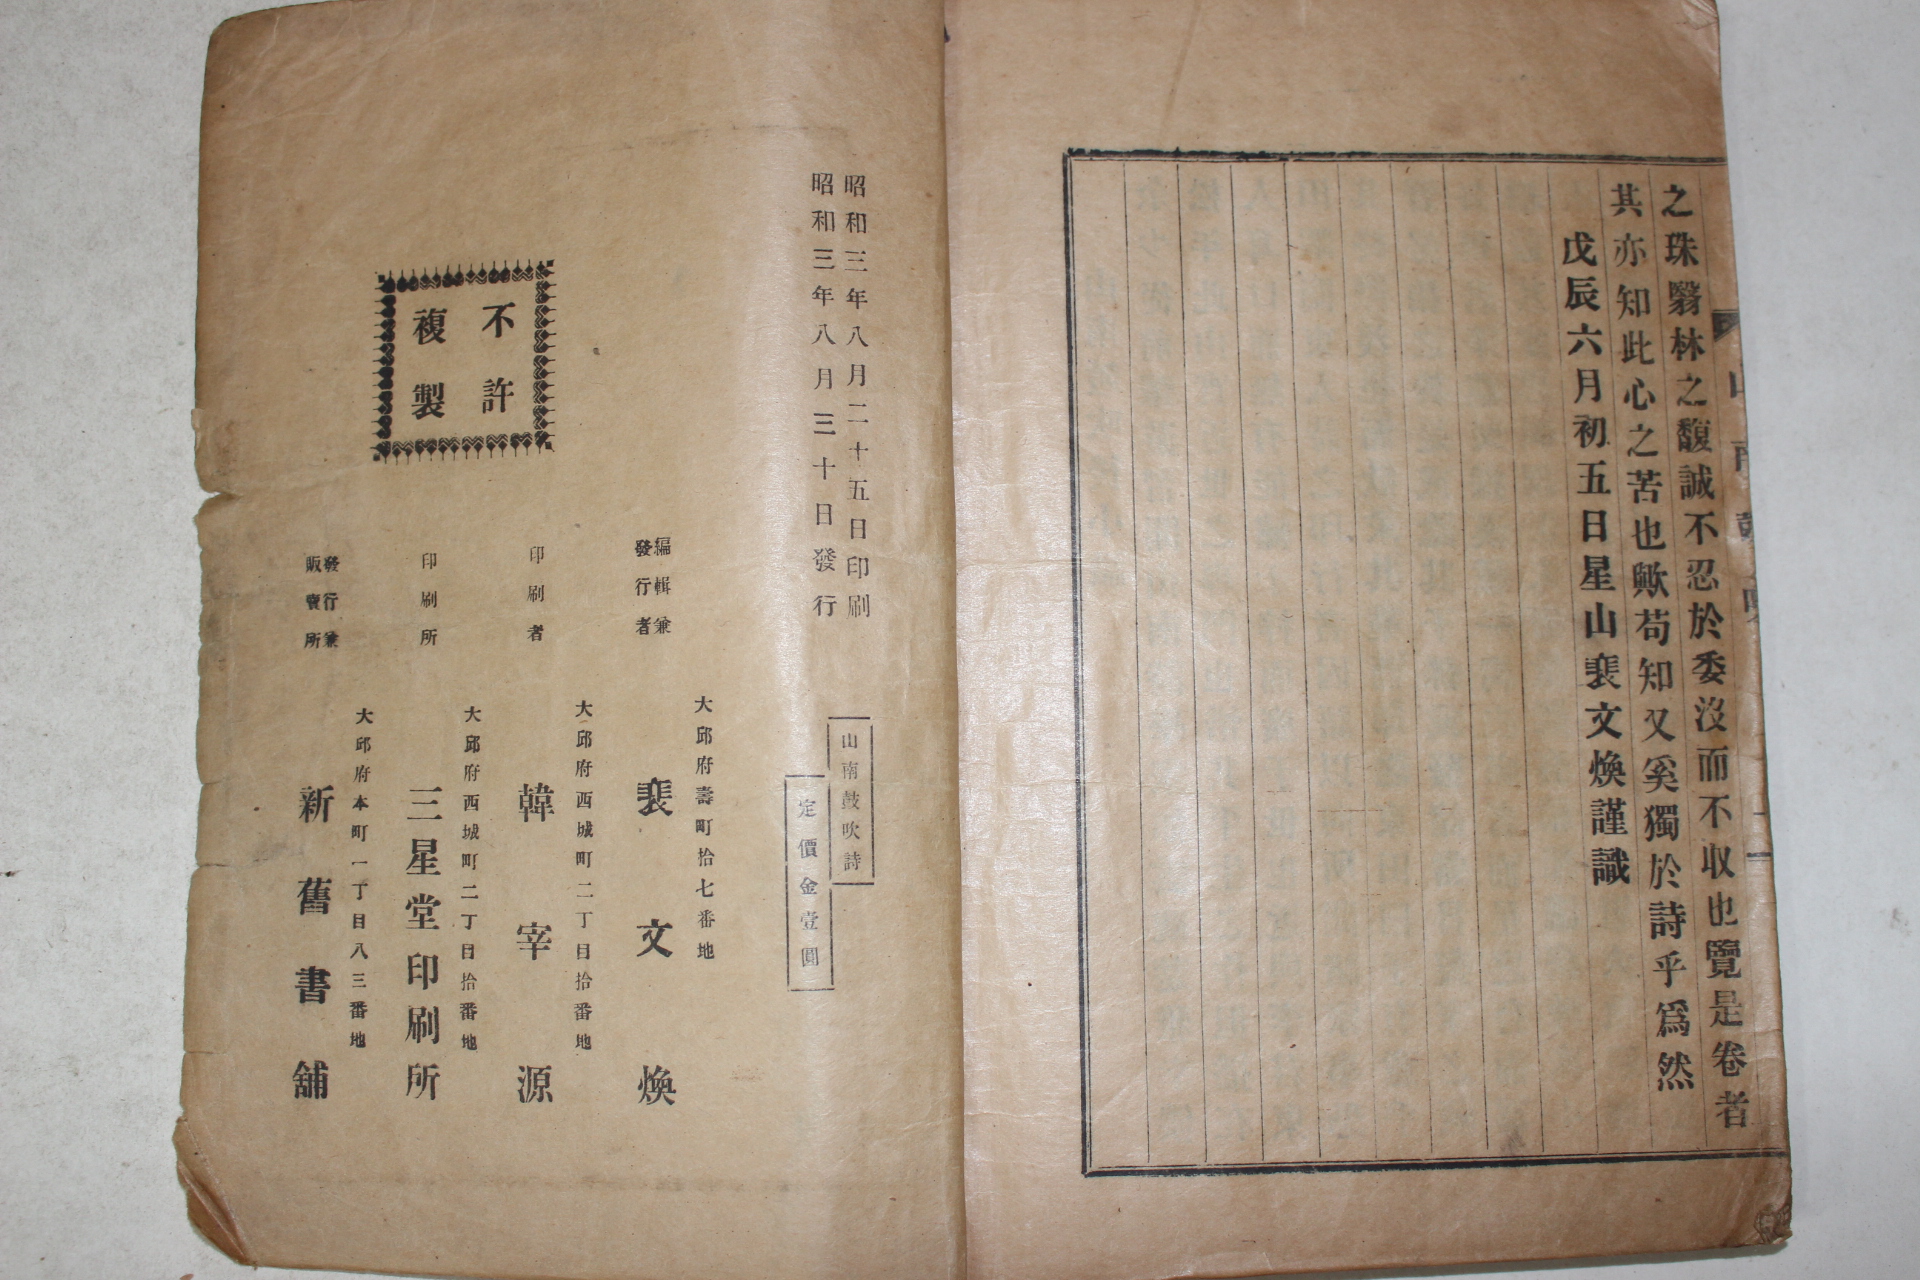 之珠翳林之馥誠不忍於委沒而不収也覽是卷者
其亦知此心之苦也歟苟知又奚獨於詩乎爲然
戊辰六月初五日星山裵文煥謹識
昭和三年八月二十五日印刷
昭和三年八月三十日發行
山南鼓吹詩
定價金壹圓
不許
複製
編輯兼
發行者
大邱府壽町拾七番地
裵文煥
印刷者
大邱府西城町二丁目拾番地
韓宰源
印刷所
大邱府西城町二丁目拾番地
三星堂印刷所
發行兼
販賣所
大邱府本町一丁目八三番地
新舊書舖